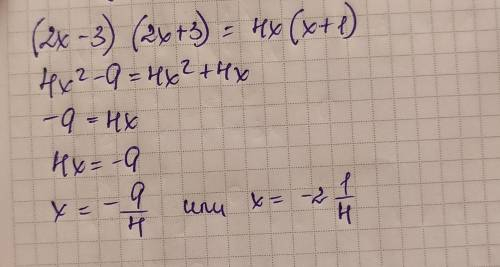 (2x-3) (2x+3) = 4x(x+1)
4x²-9=4x²+4x
-9=4x
4x=-9
x = -9/4 или x= -2 1/4